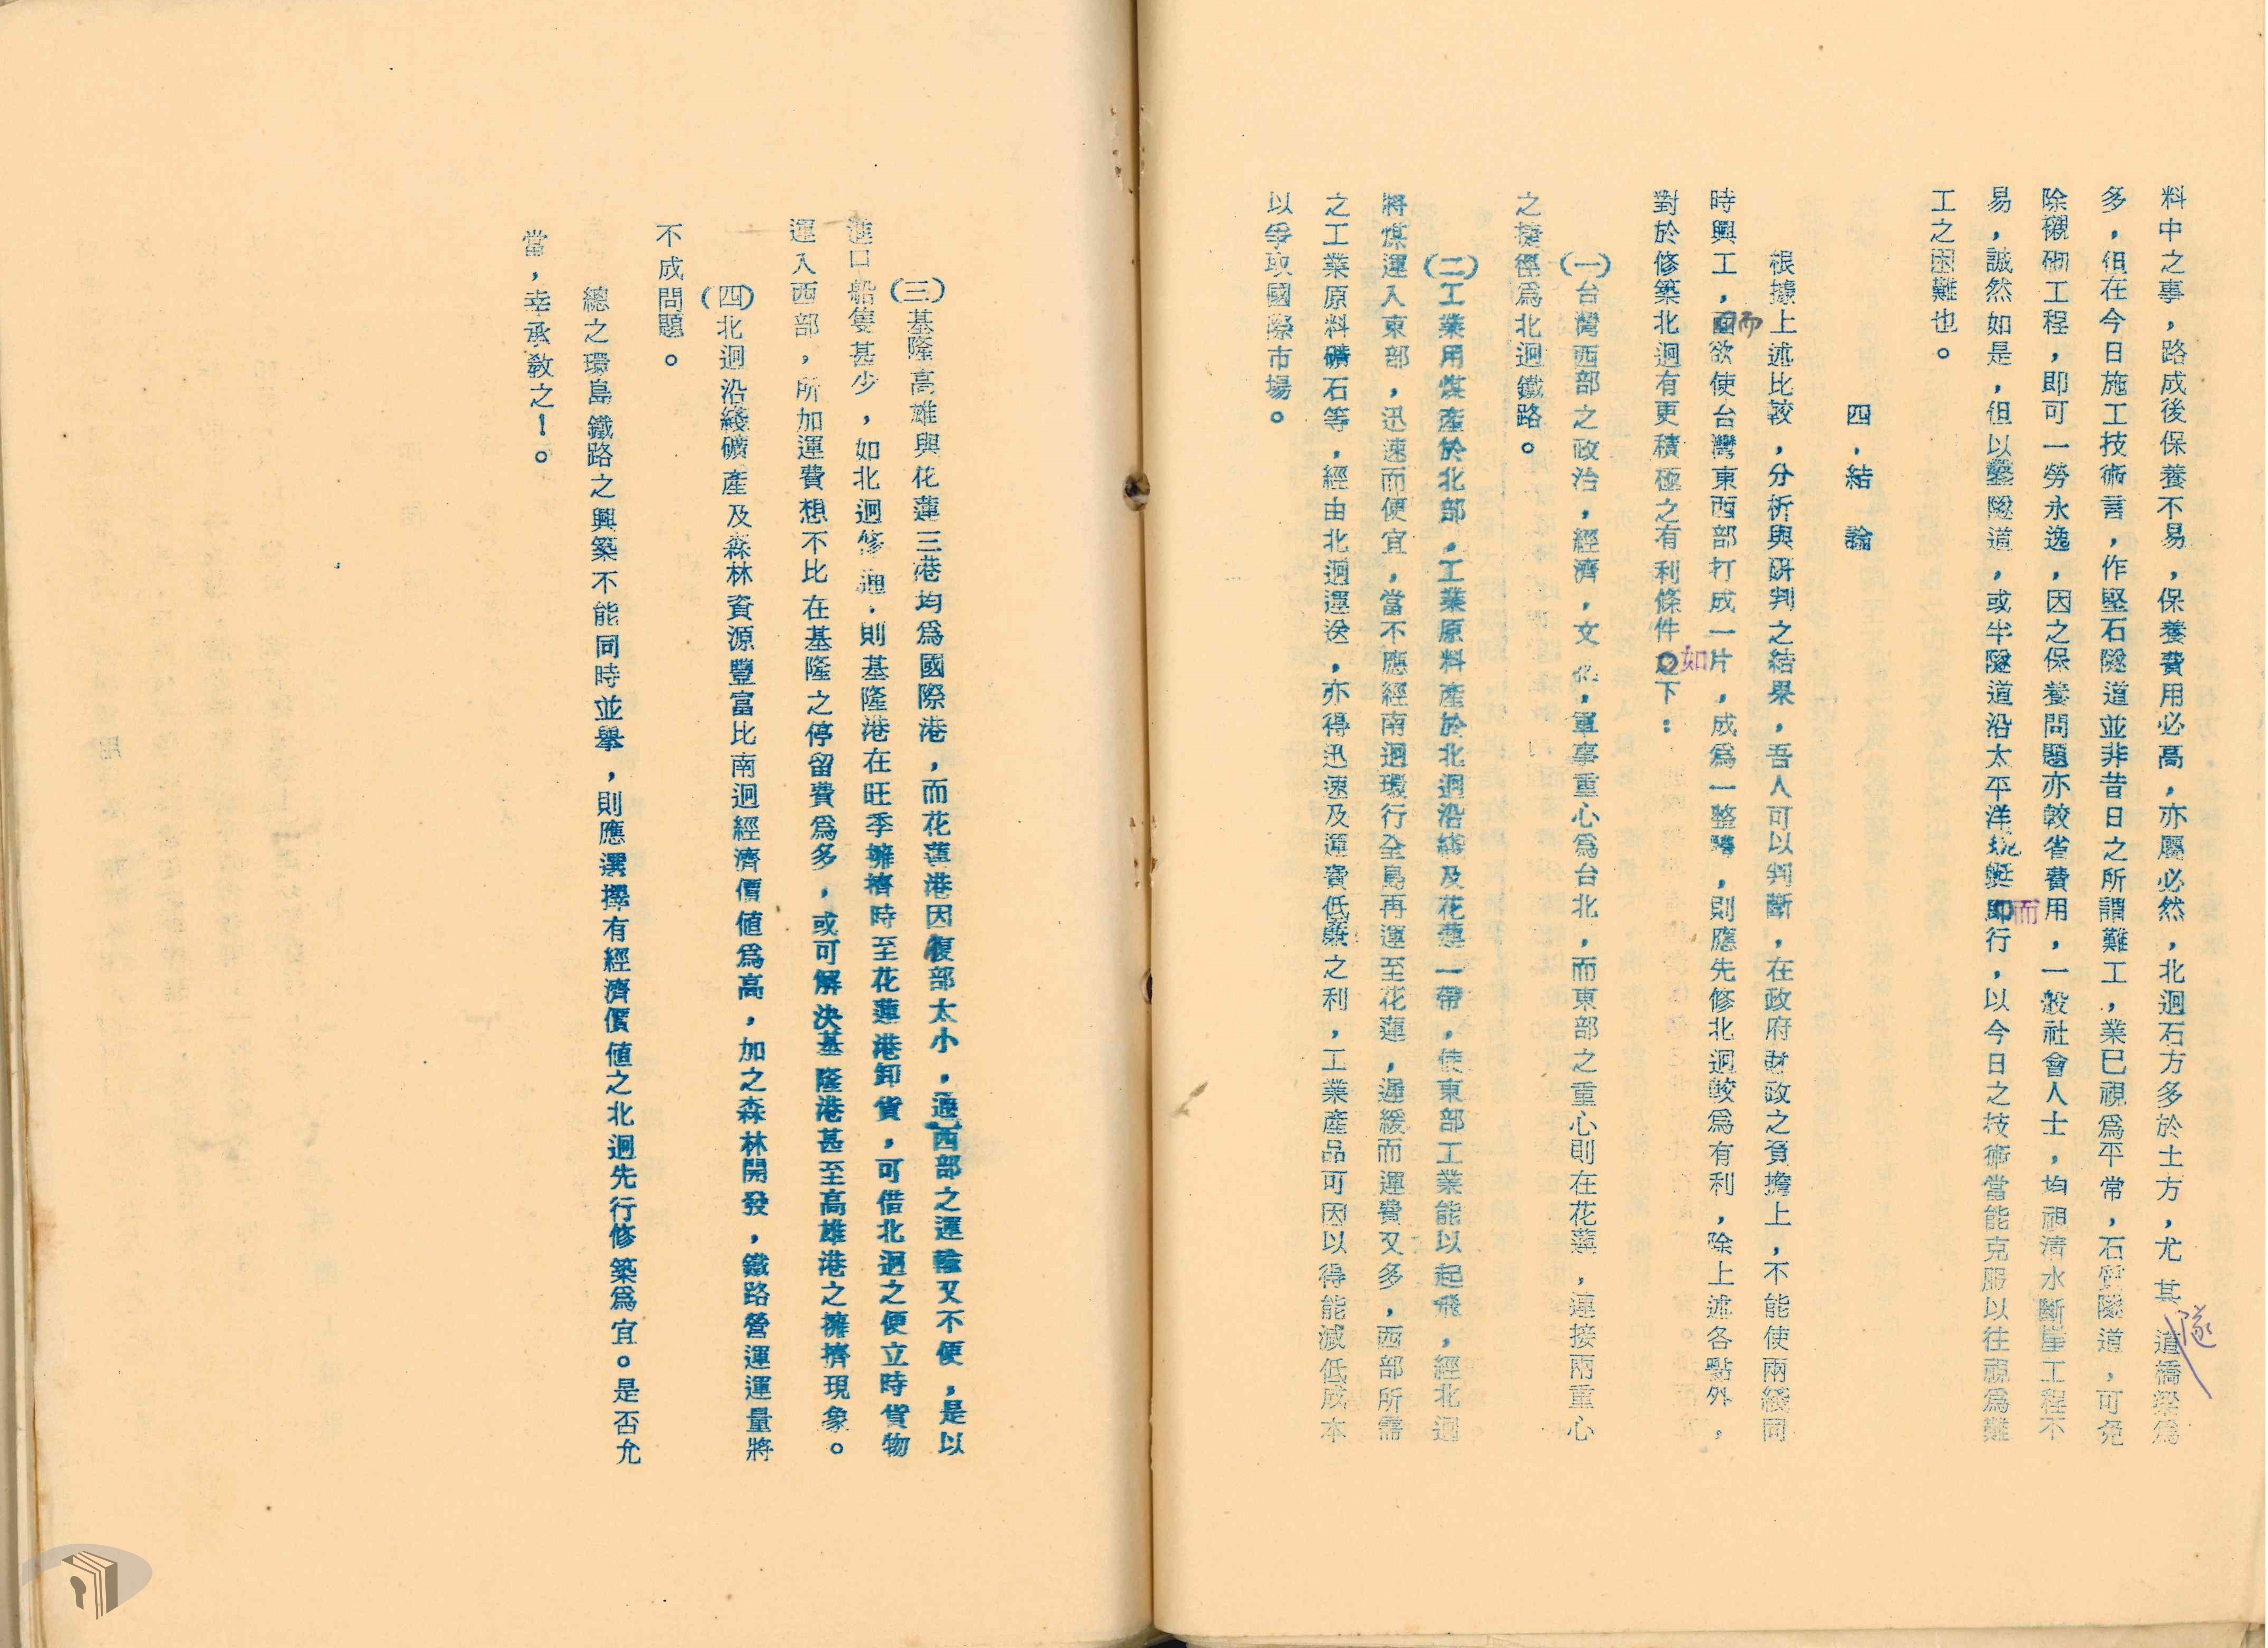 料中之事，路成後保養不易，保養費用必高，亦屬必然，北迴石方多於土方，尤其隧道橋樑爲
多，但在今日施工技術言，作堅石隧道並非昔日之所謂難工，業已視爲平常，石質隧道，可免
除襯砌工程，即可一勞永逸，因之保養問題亦較省費用，一般社會人士，均視清水斷崖工程不
易，誠然如是，但以鑿隧道，或半隧道沿太平洋蜿蜒而行，以今日之技術當能克服以往視爲難
工之困難也。
四．結論
根據上述比較，分析與研判之結果，吾人可以判斷，在政府財政之負擔上，不能使兩綫同
時興工，而欲使台灣東西部打成一片，成爲一整體，則應先修北迴較爲有利，除上述各點外，
對於修築北迴有更積極之有利條件如下：
(一)台灣西部之政治，經濟，文化，軍事重心爲台北，而東部之重心則在花蓮，連接兩重心
之捷徑爲北迴鐵路。
(二)工業用煤產於北部，工業原料產於北迴沿綫及花蓮一帶，使東部工業能以起飛，經北迴
將煤運入東部，迅速而便宜，當不應經南迴環行全島再運至花蓮，遲緩而運費又多，西部所需
之工業原料礦石等，經由北迴運送，亦得迅速及運費低廉之利，工業產品可因以得能減低成本
以爭取國際市場。
(三)基隆高雄與花蓮三港均爲國際港，而花蓮港因腹部太小，通西部之運輸又不便，是以
進口船隻甚少，如北迴修通，則基隆港在旺季擁擠時至花蓮港卸貨，可借北迴之便立時貨物
運入西部，所加運費想不比在基隆之停留費爲多，或可解決基隆港甚至高雄港之擁擠現象。
(四)北迴沿綫礦產及森林資源豐富比南迴經濟價值爲高，加之森林開發，鐵路營運運量將
不成問題。
總之環島鐵路之興築不能同時並舉，則應選擇有經濟價值之北迴先行修築爲宜。是否允
當，幸承教之！。